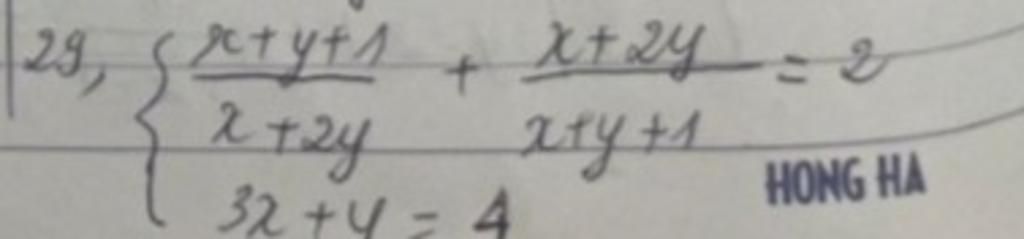 29, { (x+y+1)/(x+2y) + (x+2y)/(x+y+1) = 2
3x+y = 4
HONG HA